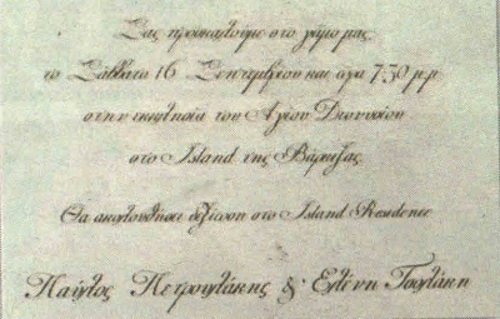 Σας προσκαλούμε στο γάμο μας
το Σάββατο 16 Σεπτεμβρίου και ώρα 7:30 μ.μ.
στην εκκλησία του Αγίου Διονυσίου
στο Island της Βάρκιζας
Θα ακολουθήσει δεξίωση στο Island Residence
Παύλος Πετρουλάκης & Ελένη Τσολάκη